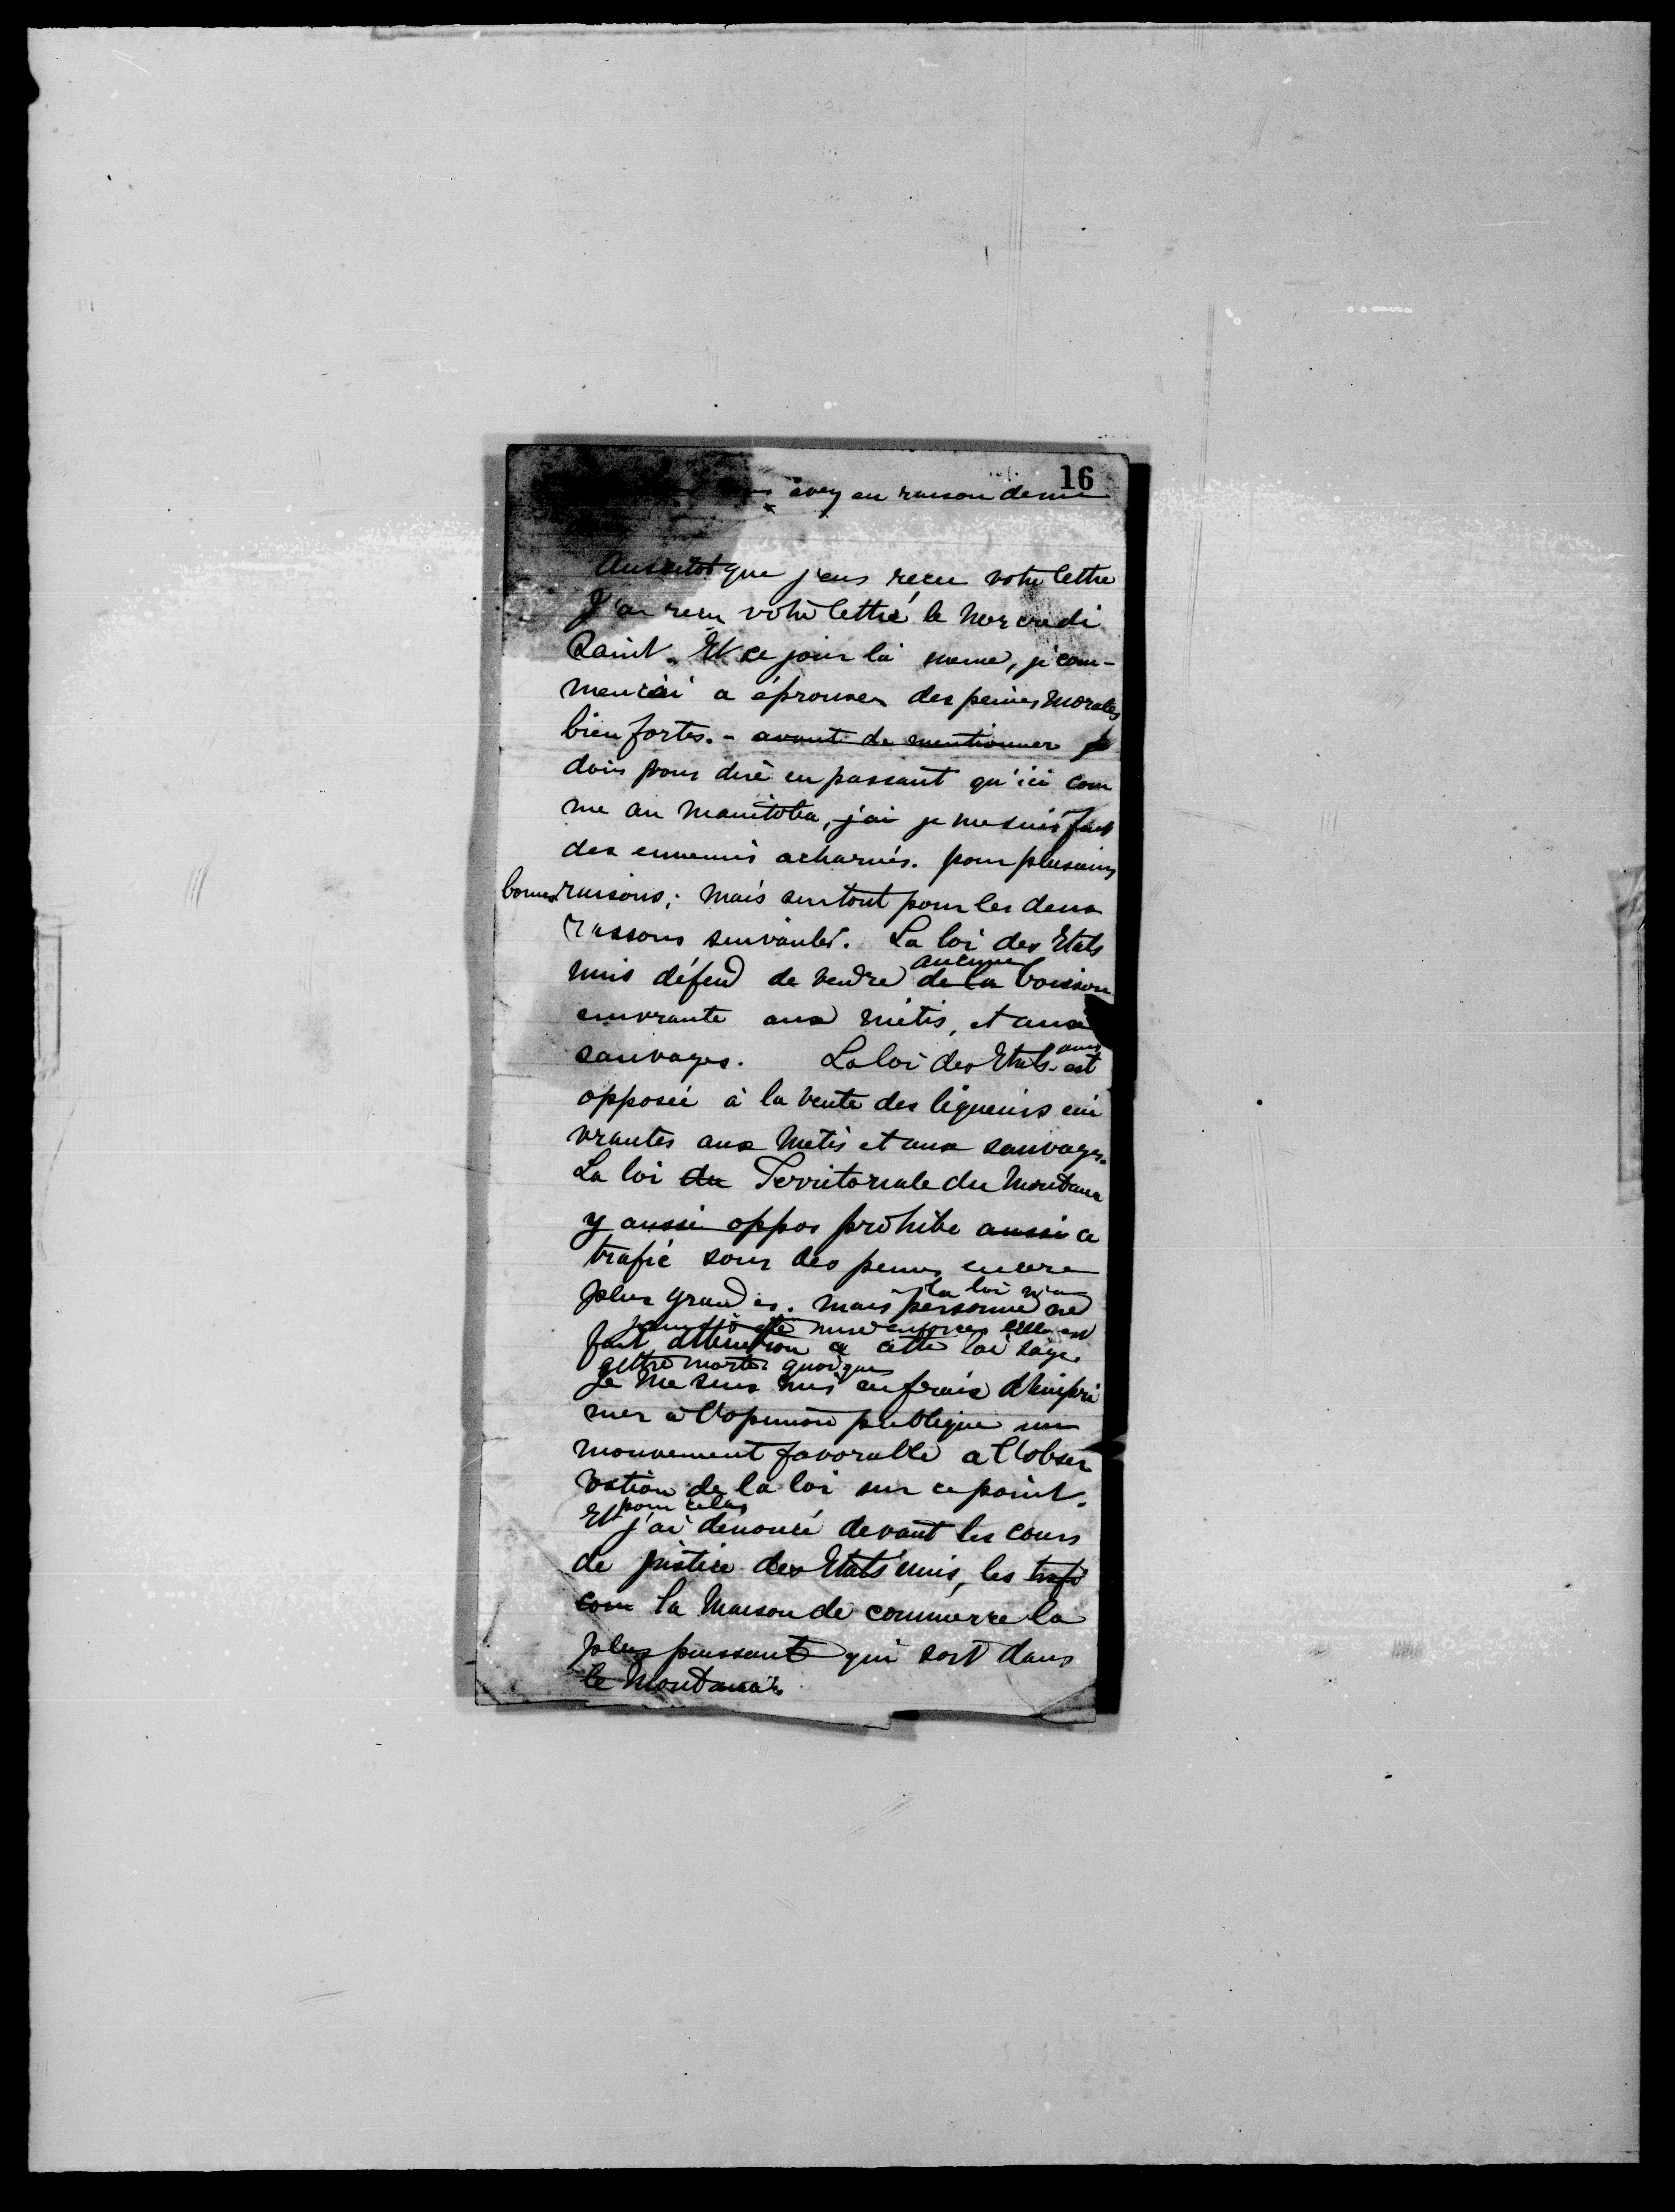 16
avez eu raison de me
Aussitôt que j'eus reçu votre lettre
J'ai reçu votre lettre le Mercredi
Saint. Et ce jour là même, je com-
mençai a éprouver des peines morales
bien fortes. - avant de mentionner je
dois vous dire en passant qu'ici com
me au Manitoba, j'ai je me suis fait
des ennemis acharnés. pour plusieurs
bonnes raisons; mais surtout pour les deux
raisons suivantes. La loi des Etats
aucune
unis défend de vendre de la boisson
enivrante aux métis, et aux
unis
sauvages. La loi des Etats est
opposée à la vente des liqueurs eni
vrantes aux Métis et aux sauvages.
La loi du Territoriale du Montana
y aussi oppos prohibe aussi ce
trafic sous des peines encore
la loi n'a
plus grandes. mais personne ne
jamais été mise en force, elle est
fait attention à cette loi sage.
lettre morte. quoique
Je me suis mis en frais d'impri
mer à l'opinion publique un
mouvement favorable à l'obser
vation de la loi sur ce point.
pour cela
Et j'ai dénoncé devant les cours
de justice des Etats unis, les trafi
com la Maison de commerce la
plus puissante qui soit dans
le Montana